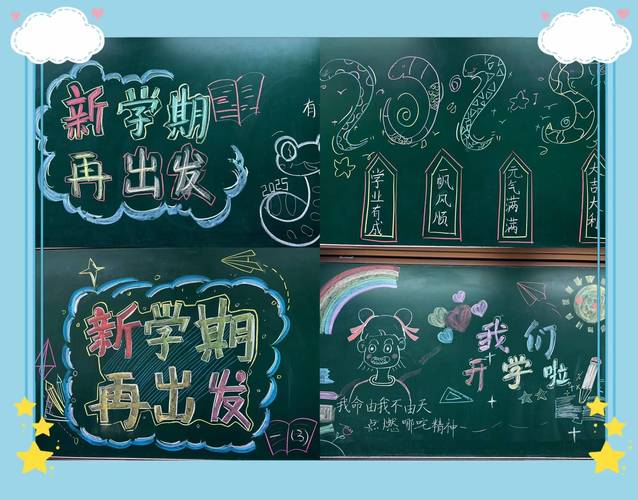 新学期
再出发
有
2025
2025
学业有成
一帆风顺
元气满满
大吉大利
新学期
再出发
一(3)
我们
开学啦
我命由我不由天
点燃哪吒精神